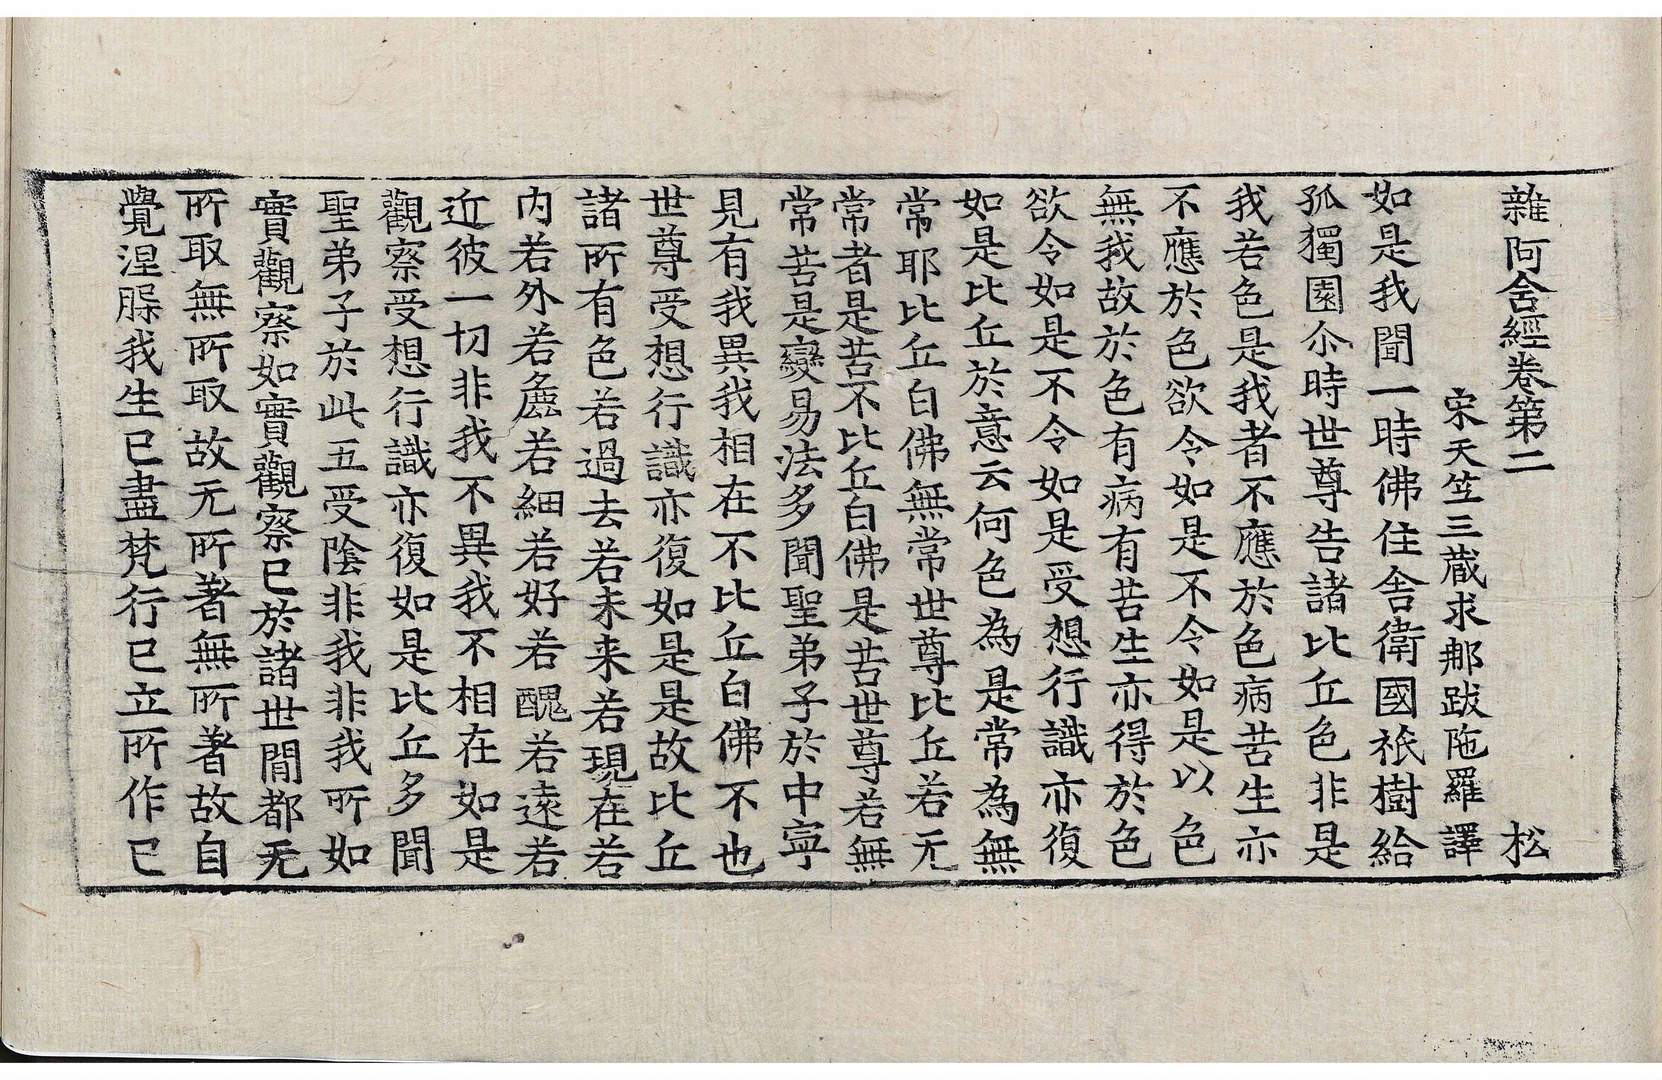 雜阿含經卷第二 松
宋天竺三藏求那跋陁羅譯
如是我聞一時佛住舍衛國祇樹給
孤獨園尒時世尊告諸比丘色非是
我若色是我者不應於色病苦生亦
不應於色欲令如是不令如是以色
無我故於色有病有苦生亦得於色
欲令如是不令如是受想行識亦復
如是比丘於意云何色為是常為無
常耶比丘白佛無常世尊比丘若无
常者是苦不比丘白佛是苦世尊若無
常苦是變易法多聞聖弟子於中寧
見有我異我相在不比丘白佛不也
世尊受想行識亦復如是是故比丘
諸所有色若過去若未来若現在若
内若外若麁若細若好若醜若遠若
近彼一切非我不異我不相在如是
觀察受想行識亦復如是比丘多聞
聖弟子於此五受陰非我非我所如
實觀察如實觀察已於諸世閒都无
所取無所取故无所著無所著故自
覺涅槃我生已盡梵行已立所作已